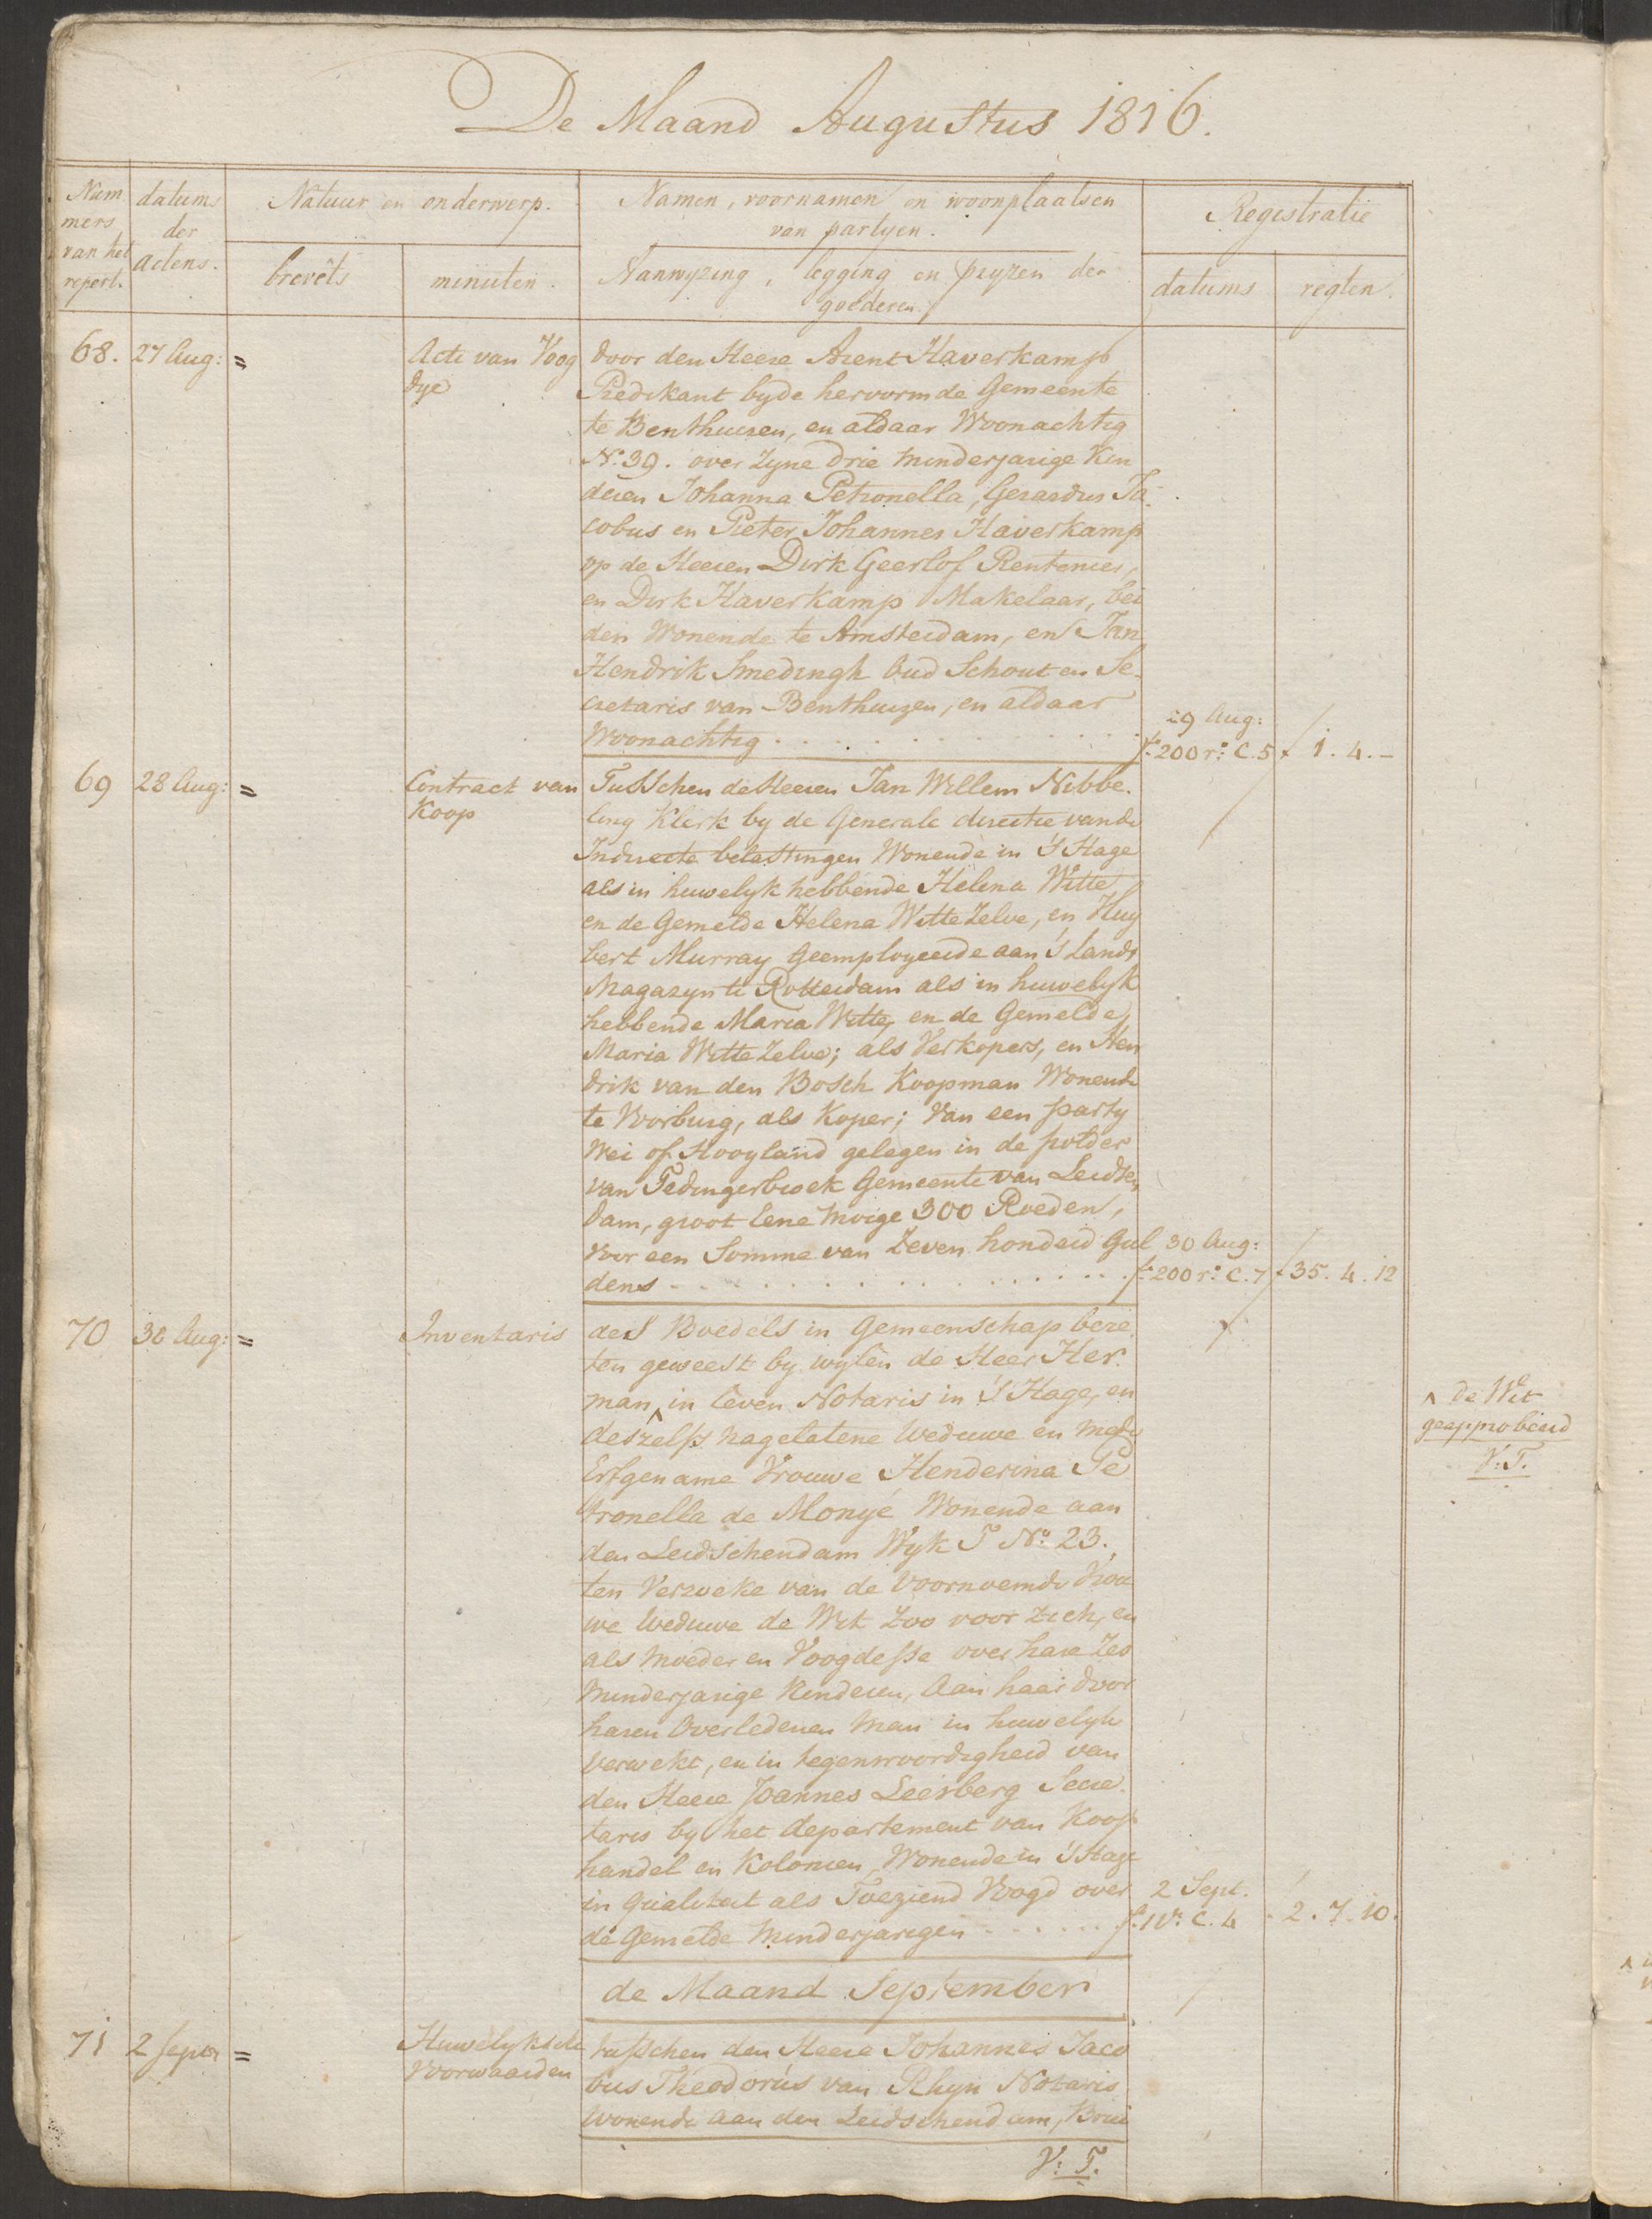 De Maand Augustus 1816.
Num
mers
van het
repert.
datums
der
actens.
Natuur en onderwerp.
brevêts
minuten.
Namen, voornamen en woonplaatsen
van partyen.
Aanwyzing, legging en pryzen der
goederen.
Registratie
datums
regten.
68. 27 Aug: =
Acte van Voog
dye
door den Heere Arent Haverkamp
Predikant byde hervormde Gemeente
te Benthuizen, en aldaar Woonachtig
No. 39. over Zyne drie minderjarige Kin
deren Johanna Petronella, Gerardus Ja
cobus en Pieter Johannes Haverkamp
op de Heeren Dirk Geerlof Rentenier,
en Dirk Haverkamp Makelaar, bei
den Wonende te Amsterdam, en Jan
Hendrik Smedingh Oud Schout en Se
cretaris van Benthuizen, en aldaar
Woonachtig
29 Aug:
fo. 200 ro. C. 5 f 1. 4. –
69 28 Aug: =
Contract van
Koop
Tusschen de Heeren Jan Willem Nibbe
ling Klerk by de Generale directie vande
Indirecte belastingen Wonende in 'S Hage
als in huwelyk hebbende Helena Witte,
en de Gemelde Helena Witte Zelve, en Huy
bert Murray Geemployeerde aan 's Lands
Magazyn te Rotterdam als in huwelyk
hebbende Maria Witte, en de Gemelde
Maria Witte Zelve; als Verkopers, en Hen
drik van den Bosch Koopman Wonende
te Voorburg, als Koper; Van een party
Wei of Hooyland gelegen in de polder
van Tedingerbroek Gemeente van Leidsen
dam, groot Eene Morge 300 Roeden,
Voor een Somme van Zeven honderd Gul
dens
30 Aug:
fo. 200 ro. C. 7 f 35. 4. 12
70 30 Aug: =
Inventaris
des Boedels in Gemeenschap beze
ten geweest by wylen de Heer Her
man ^ in leven Notaris in 'S Hage, en
deszelfs nagelatene Weduwe en mede
Erfgename Vrouwe Henderina Pe
tronella de Monyé Wonende aan
den Leidschendam Wyk T No. 23.
ten Verzoeke van de Voornoemde Vrou
we Weduwe de Wit Zoo voor Zich, en
als Moeder en Voogdesse over hare Zes
Minderjarige Kinderen, Aan haar door
haren Overledenen Man in huwelyk
Verwekt, en in tegenwoordigheid van
den Heere Joannes Leersberg Secre
taris by het departement van Koop
handel en Kolonien, Wonende in 'S Hage
in Qualiteit als Toeziend Voogd over
de Gemelde Minderjarigen
2 Sept.
fo. 1 Vo. C. 4 2. 7. 10.
^ de Wit
geapprobeerd
V: T.
de Maand September
71 2 Septr =
Huwelyksche
Voorwaarden
tusschen den Heere Johannes Jaco
bus Theodorus van Rhyn Notaris
Wonende aan den Leidschendam, Brui
V: T.